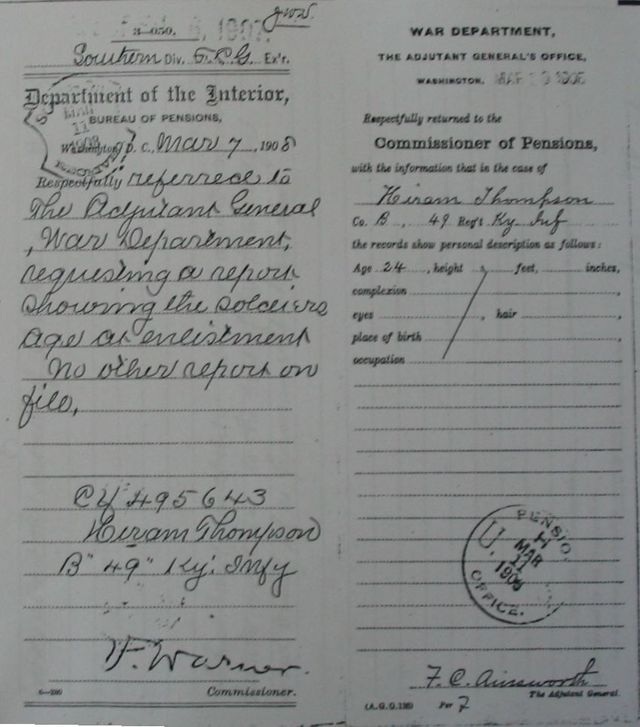 J.W.D.
3-050.
Southern Div. F.C.G. Ex'r.
Department of the Interior,
BUREAU OF PENSIONS,
Washington, D. C., Mar 7, 1908
Respectfully referred to
The Adjutant General
, War Department,
requesting a report
showing the soldiers
age at enlistment
No other report on
file,
495643
Hiram Thompson
B" 49" Ky. Infy
V. Warner.
Commissioner.
WAR DEPARTMENT,
THE ADJUTANT GENERAL'S OFFICE,
WASHINGTON, MAR
Respectfully returned to the
Commissioner of Pensions,
with the information that in the case of
Hiram Thompson
Co. B, 49 Reg't Ky Inf
the records show personal description as follows:
Age 24, height feet, inches,
complexion ,
eyes , hair ,
place of birth ,
occupation
PENSIO
MAR
11
OFFICE.
F. C. Ainsworth
The Adjutant General.
(A.G.O. 190) Per 7